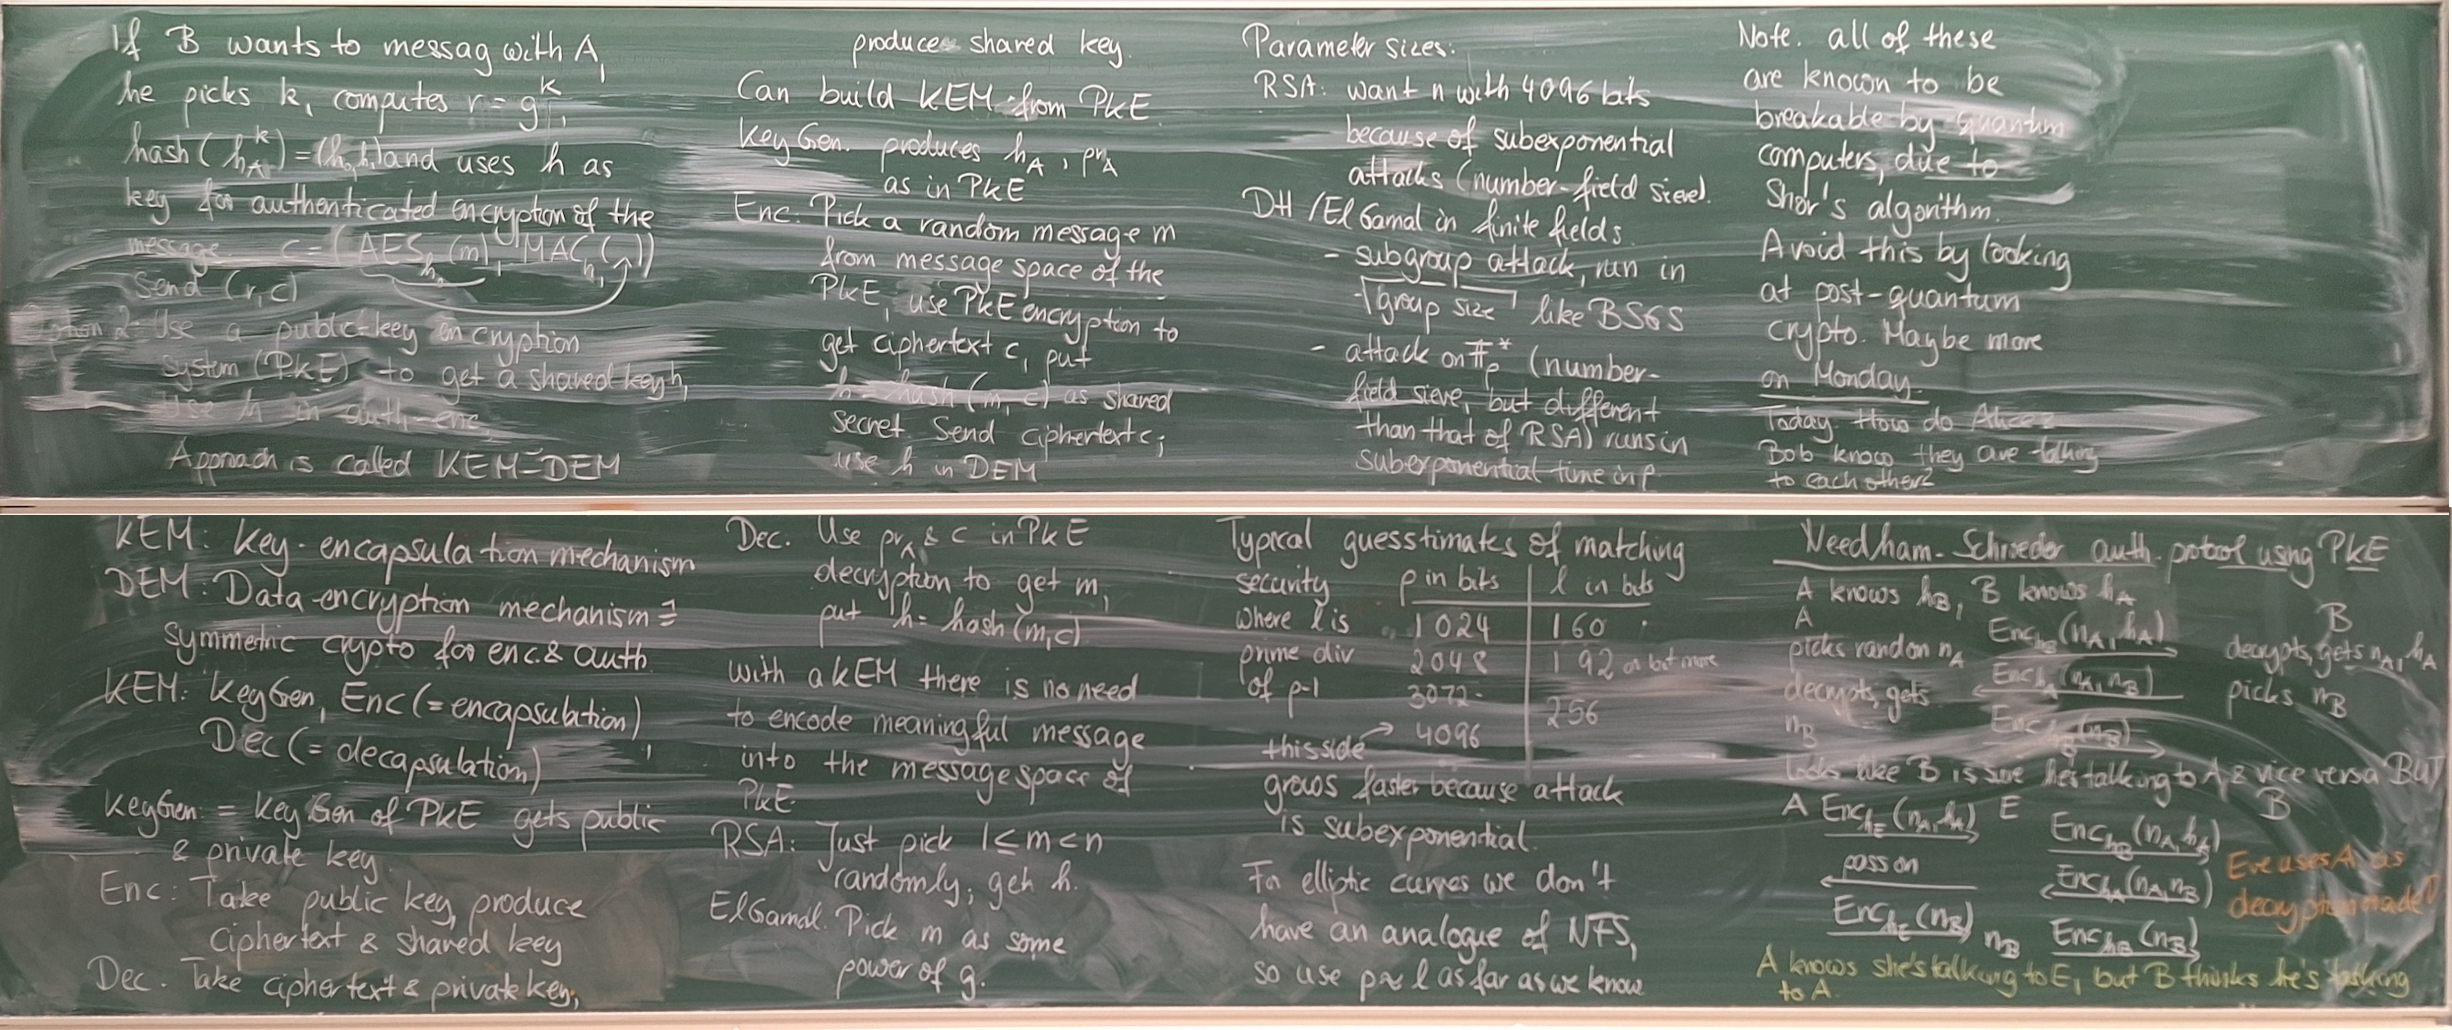 If B wants to messag with A,
he picks k, computes r = g^k,
hash(h_A^k) = (h_0, h_1) and uses h as
key for authenticated encryption of the
message. c = (AES_h (m), MAC_h_1( ))
Send (r, c)
Option 2: Use a public-key encryption
system (PkE) to get a shared key h,
use h in auth-enc.
Approach is called KEM-DEM
KEM: Key-encapsulation mechanism
DEM: Data encryption mechanism =
symmetric crypto for enc. & auth
KEM: KeyGen, Enc (= encapsulation)
Dec (= decapsulation)
KeyGen = KeyGen of PKE gets public
& private key.
Enc: Take public key, produce
ciphertext & shared key
Dec. Take ciphertext & private key,
produce shared key.
Can build KEM from PKE.
KeyGen. produces h_A, pr_A
as in PkE
Enc: Pick a random message m
from message space of the
PkE, use PkE encryption to
get ciphertext c, put
h = hash(m, c) as shared
secret. Send ciphertext c;
use h in DEM
Dec. Use pr_A & c in PkE
decryption to get m,
put h = hash(m,c).
with a KEM there is no need
to encode meaningful message
into the message space of
PkE.
RSA: Just pick 1 ≤ m < n
randomly; get h.
ElGamal. Pick m as some
power of g.
Parameter sizes:
RSA: want n with 4096 bits
because of subexponential
attacks (number-field sieve).
DH / ElGamal in finite fields.
- subgroup attack, run in
√group size like BSGS
- attack on F_p^* (number-
field sieve, but different
than that of RSA) runs in
subexponential time in p
Typical guesstimates of matching
security p in bits l in bits
where l is 1024 160
prime div 2048 192 or bit more
of p-1 3072
256
this side → 4096
grows faster because attack
is subexponential.
For elliptic curves we don't
have an analogue of NFS,
so use p ≈ l as far as we know
Note. all of these
are known to be
breakable by quantum
computers, due to
Shor's algorithm.
Avoid this by looking
at post-quantum
crypto. Maybe more
on Monday.
Today. How do Alice &
Bob know they are talking
to each other?
Needham-Schroeder auth. protocol using PKE
A knows h_B, B knows h_A
A B
picks random n_A Enc_h_B(n_A, h_A) decrypts, gets n_A, h_A
decrypts, gets Enc_h_A(n_A, n_B) picks n_B
n_B Enc_h_B(n_B)
looks like B is sure he's talking to A & vice versa BUT
A Enc_h_E(n_A, h_A) E Enc_h_B(n_A, h_A) B
pass on Enc_h_A(n_A, n_B) Eve uses A as
Enc_h_E(n_B) n_B Enc_h_B(n_B) decryption oracle
A knows she's talking to E, but B thinks he's talking
to A.